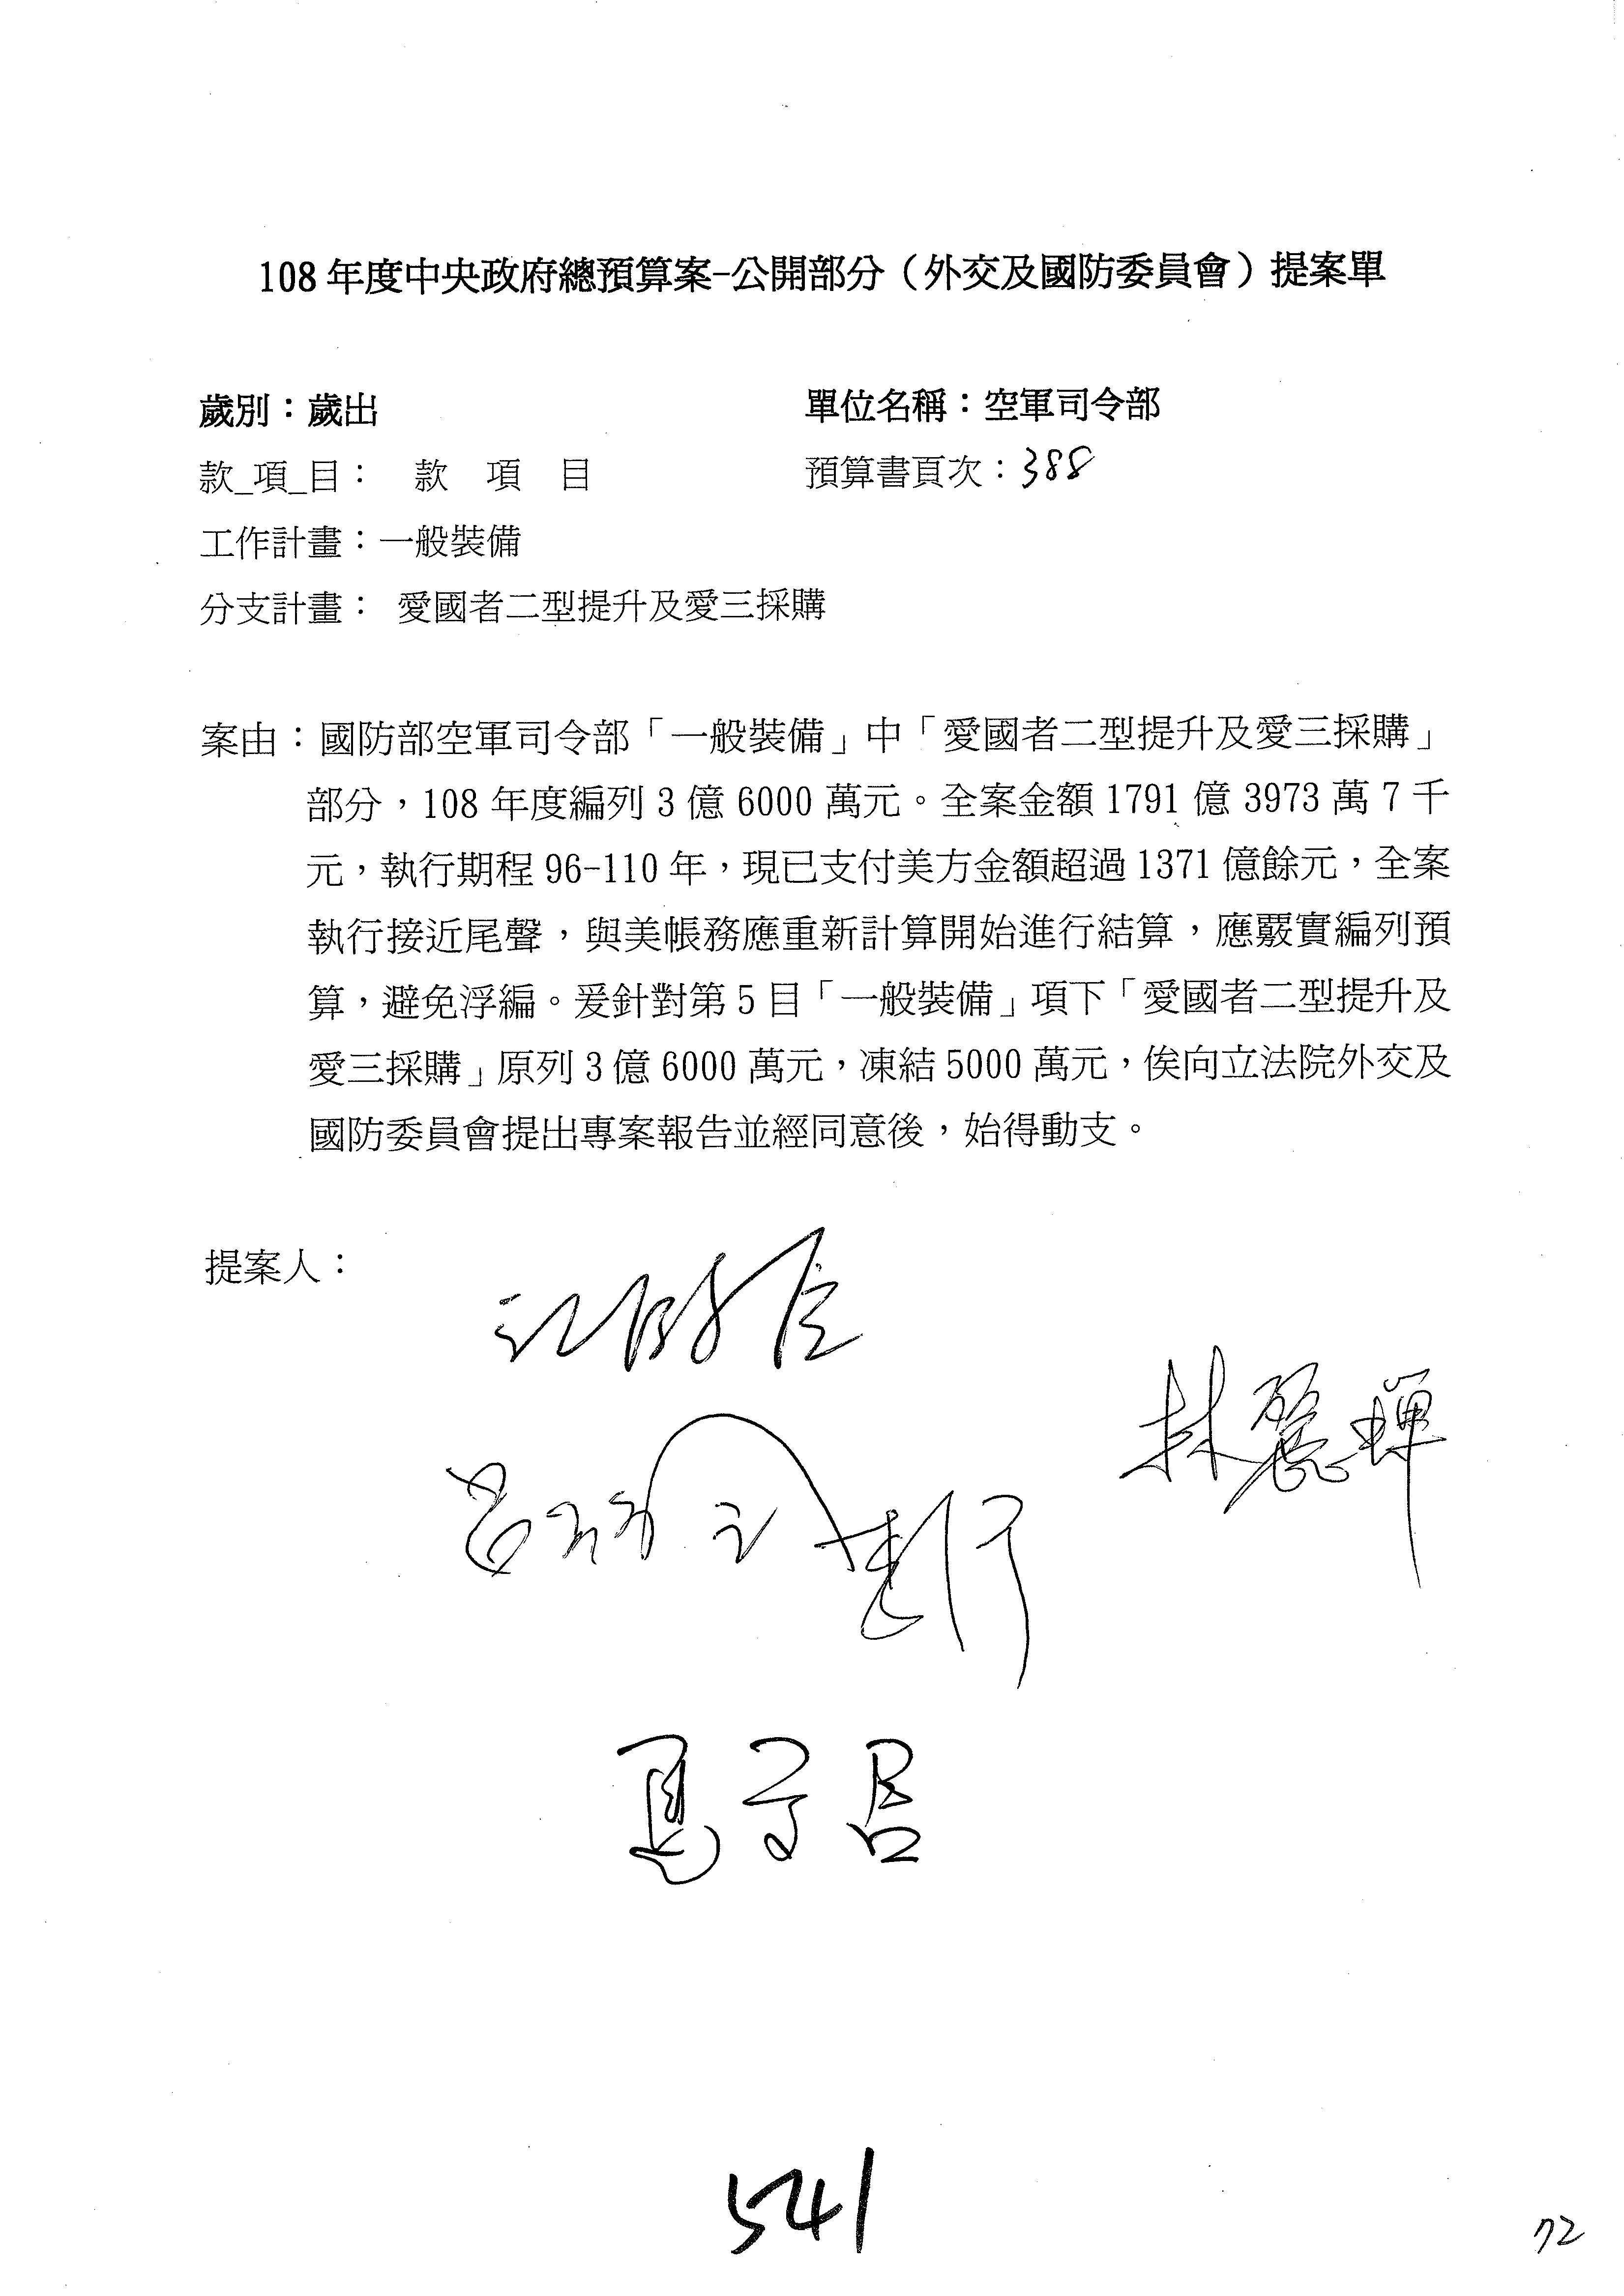 108年度中央政府總預算案-公開部分（外交及國防委員會）提案單
歲別：歲出　單位名稱：空軍司令部
款_項_目：　款　項　目　預算書頁次：388
工作計畫：一般裝備
分支計畫：　愛國者二型提升及愛三採購
案由：國防部空軍司令部「一般裝備」中「愛國者二型提升及愛三採購」
部分，108年度編列3億6000萬元。全案金額1791億3973萬7千
元，執行期程96-110年，現已支付美方金額超過1371億餘元，全案
執行接近尾聲，與美帳務應重新計算開始進行結算，應覈實編列預
算，避免浮編。爰針對第5目「一般裝備」項下「愛國者二型提升及
愛三採購」原列3億6000萬元，凍結5000萬元，俟向立法院外交及
國防委員會提出專案報告並經同意後，始得動支。
提案人：
林麗蟬
541
72